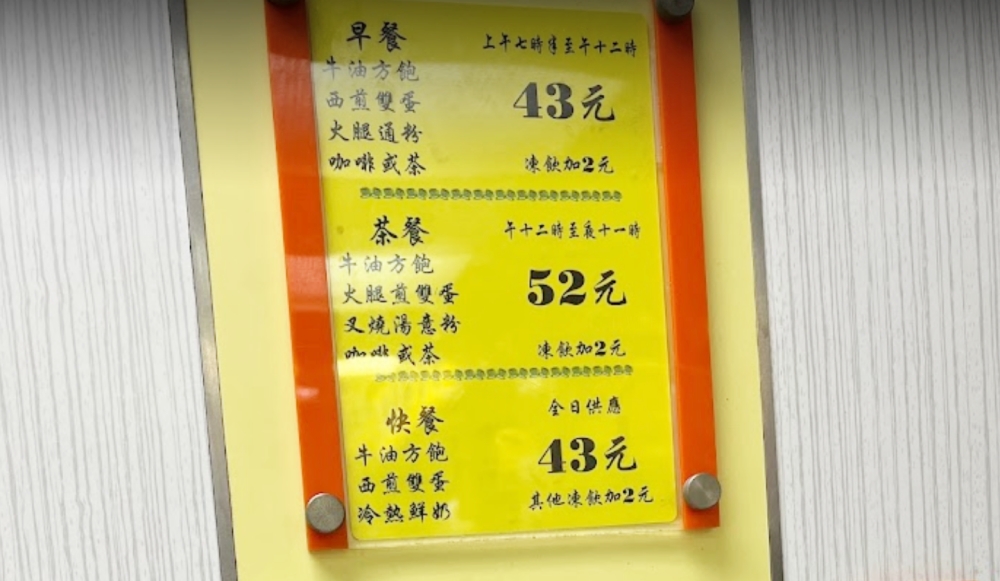 早餐
上午七時半至午十二時
牛油方飽
西煎雙蛋
43元
火腿通粉
咖啡或茶
凍飲加2元
茶餐
午十二時至夜十一時
牛油方飽
火腿煎雙蛋
52元
叉燒湯意粉
咖啡或茶
凍飲加2元
快餐
全日供應
牛油方飽
43元
西煎雙蛋
其他凍飲加2元
冷熱鮮奶